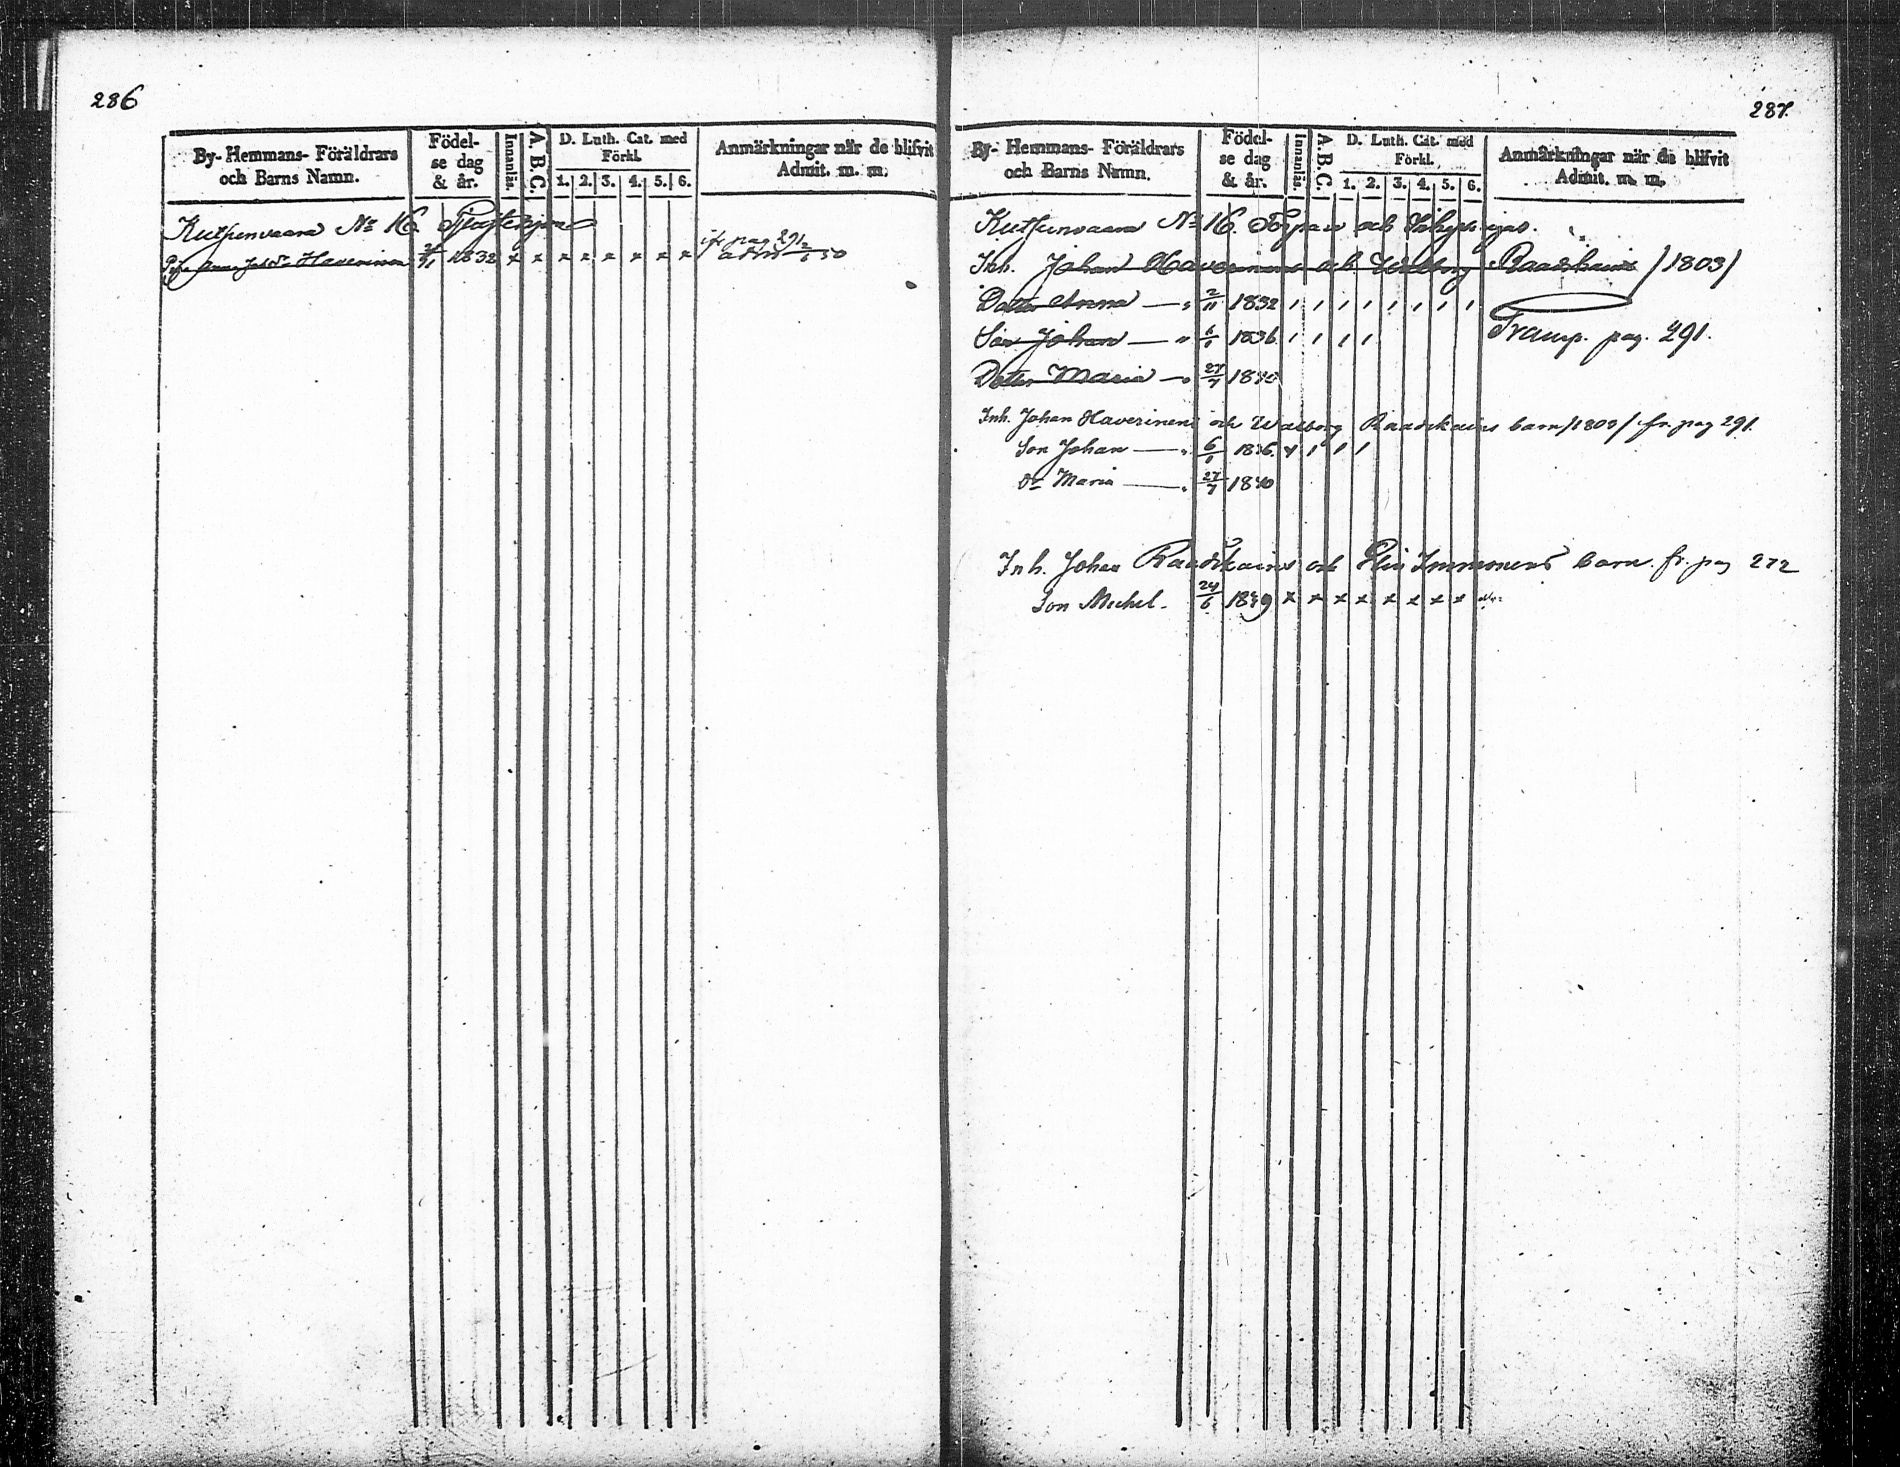 286
By- Hemmans- Föräldrars och Barns Namn.
Födel- se dag & år.
Innanläs.
A. B. C.
D. Luth. Cat. med Förkl.
1. 2. 3. 4. 5. 6.
Anmärkningar när de blifvit Admit. m. m.
No 16.
fr pag 291
Haverinen 2/11 1832 x x x x x x x x
287.
By- Hemmans- Föräldrars och Barns Namn.
Födel- se dag & år.
Innanläs.
A. B. C.
D. Luth. Cat. med Förkl.
1. 2. 3. 4. 5. 6.
Anmärkningar när de blifvit Admit. m. m.
No 16. och
Inh. Johan Haverinens och Walborg Raadskains /1803/
Dotter Anna — " 2/11 1832 / / / / / / / /
Son Johan — " 6/1 1836 / / / /
Transp. pag. 291.
Dotter Maria — " 27/7 1840
Inh. Johan Haverinens och Walborg Raadskains barn /1803/ fr. pag 291.
Son Johan — " 6/1 1836 / / / /
Dr Maria — " 27/7 1840
Inh. Johan Raadskains och Immonens barn fr. pag 272
Son Michel. 24/6 x x x x x x x x